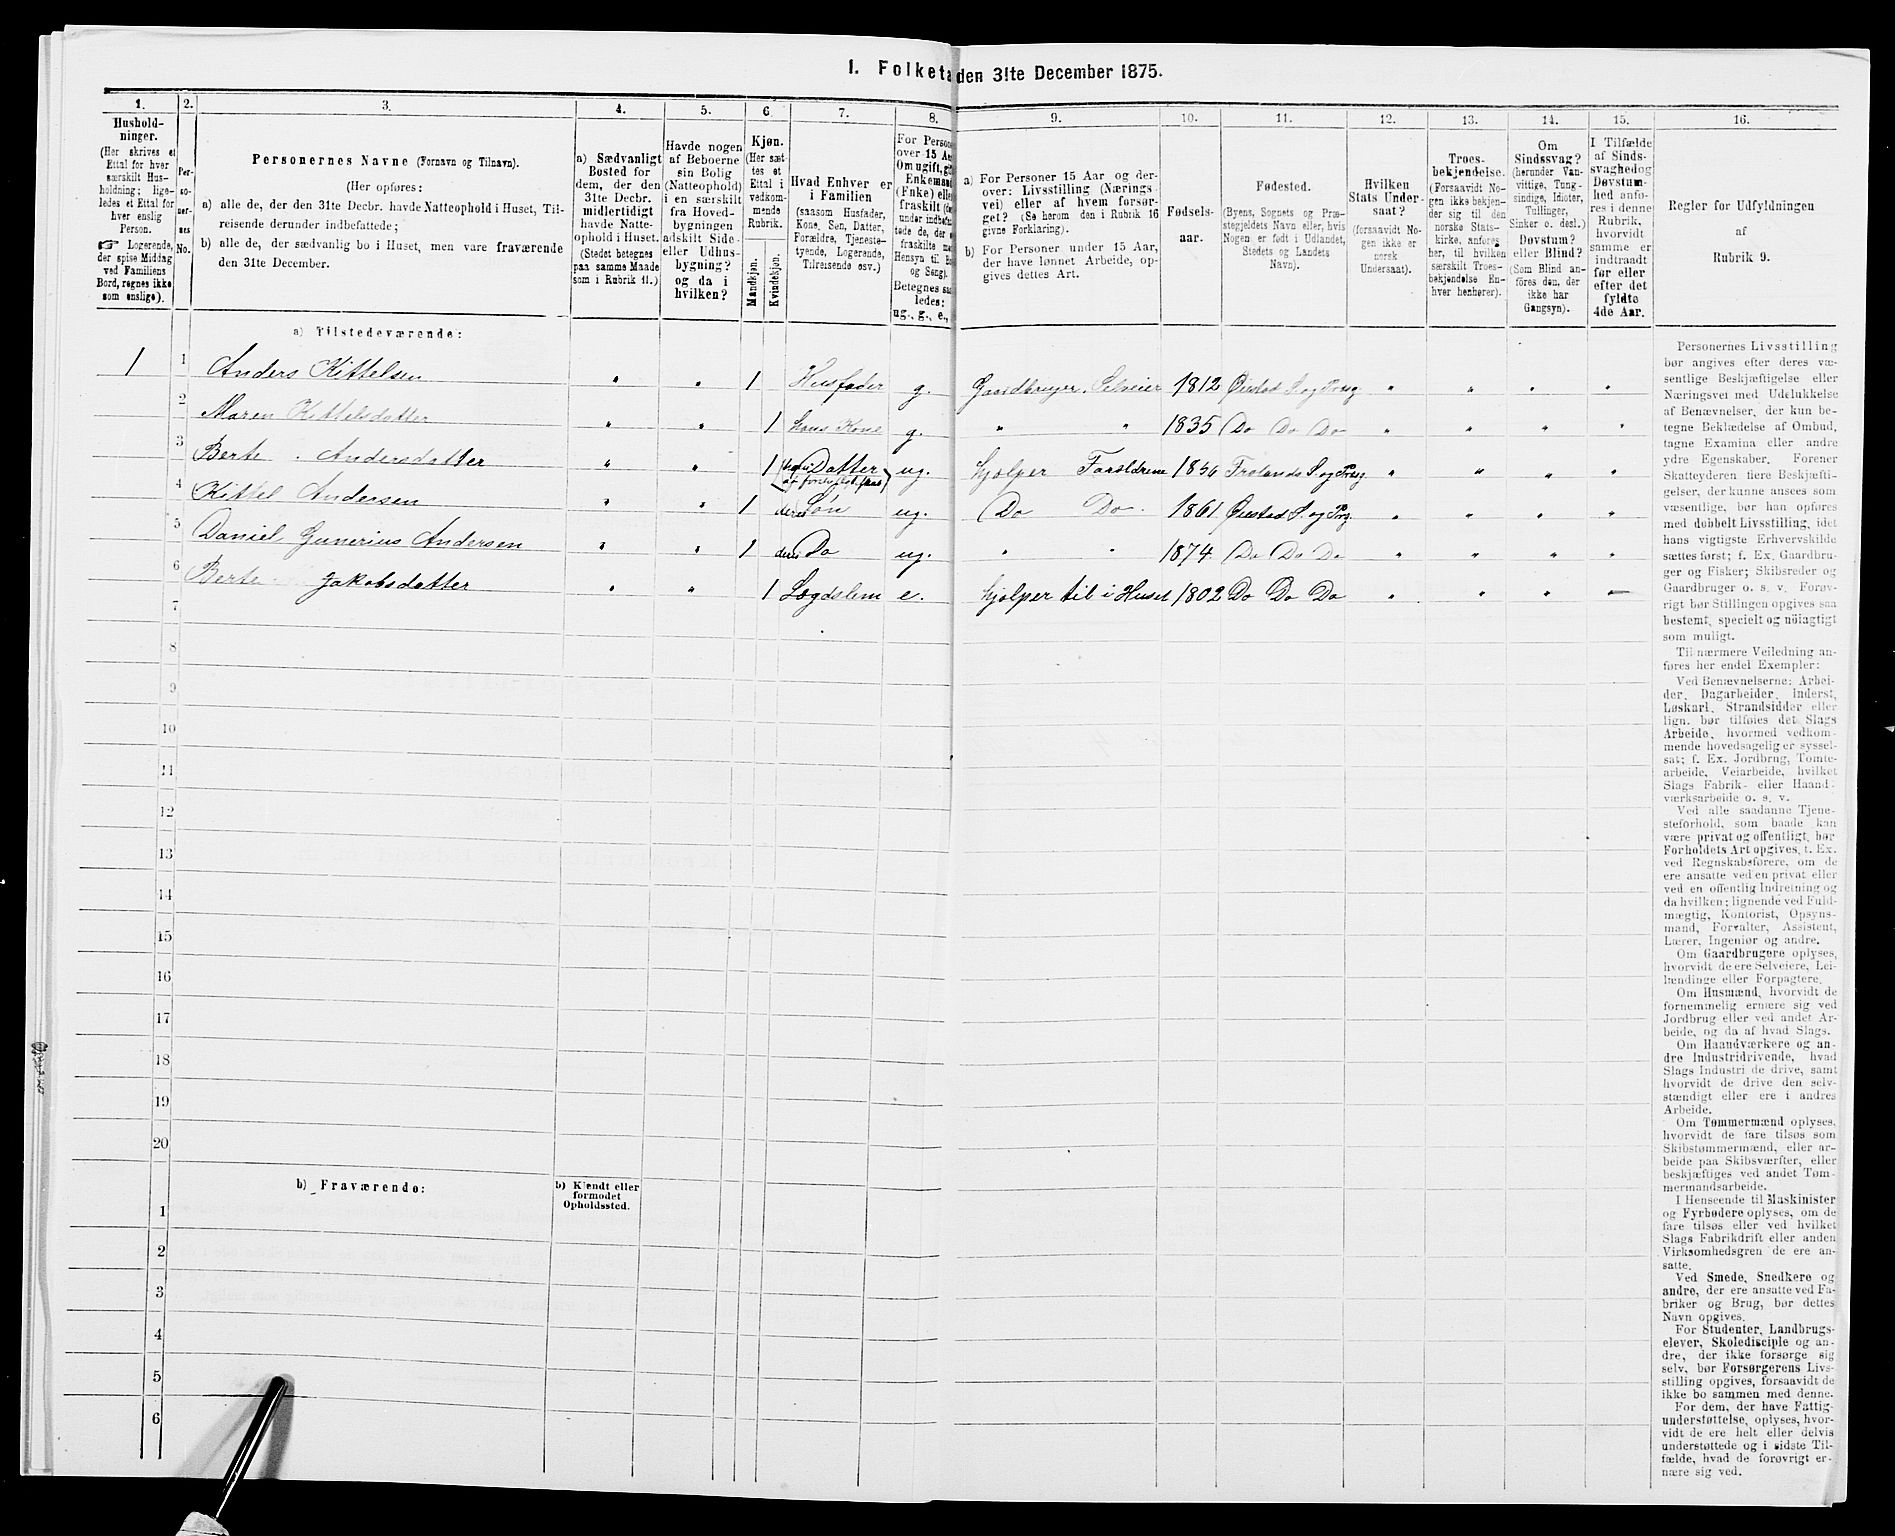 1. Folketa den 31te December 1875.
1. 2. 3. 4. 5. 6. 7. 8. 9. 10. 11. 12. 13. 14. 15. 16.
Hushold-
ninger.
(Her skrives et
Ettal for hver
særskilt Hus-
holdning; lige-
ledes et Ettal for
hver enslig
Person.
☞ Logerende,
der spise Middag
ved Familiens
Bord, regnes ikke
som enslige).
Per-
so-
ner-
nes
No.
Personernes Navne (Fornavn og Tilnavn).
(Her opføres:
a) alle de, der den 31te Decbr. havde Natteophold i Huset, Til-
reisende derunder indbefattede;
b) alle de, der sædvanlig bo i Huset, men vare fraværende
den 31te December.
a) Sædvanligt
Bosted for
dem, der den
31te Decbr.
midlertidigt
havde Natte-
ophold i Huset.
(Stedet betegnes
paa samme Maade
som i Rubrik 11.)
Havde nogen
af Beboerne
sin Bolig
(Natteophold)
i en særskilt
fra Hoved-
bygningen
adskilt Side-
eller Udhus-
bygning?
og da i
hvilken?
Kjøn.
(Her sæt-
tes et
Ettal i
vedkom-
mende
Rubrik.
Mandkjøn.
Kvindekjøn.
Hvad Enhver er
i Familien
(saasom Husfader,
Kone, Søn, Datter,
Forældre, Tjeneste-
tyende, Logerende,
Tilreisende osv.)
For Persone
over 15 Aa
Om ugift, gif
Enkemand
(Enke) elle
fraskilt (fra
under indbefat
tede de, der e
fraskilte me
Hensyn til Bo
og Seng).
Betegnes saa
ledes:
ug., g., e.,
a) For Personer 15 Aar og der-
over: Livsstilling (Nærings-
vei) eller af hvem forsør-
get? (Se herom den i Rubrik 16
givne Forklaring).
b) For Personer under 15 Aar,
der have lønnet Arbeide, op-
gives dettes Art.
Fødsels-
aar.
Fødested.
(Byens, Sognets og Præ-
stegjeldets Navn eller, hvis
Nogen er født i Udlandet,
Stedets og Landets
Navn).
Hvilken
Stats Under-
saat?
(forsaavidt No-
gen ikke er
norsk
Undersaat).
Troes-
bekjendelse.
(Forsaavidt No-
gen ikke bekjen-
der sig til den
norske Stats-
kirke, anføres
her, til hvilken
særskilt Troes-
bekjendelse En-
hver henhører).
Om
Sindssvag?
(herunder Van-
vittige, Tung-
sindige, Idioter,
Tullinger,
Sinker o. desl.)
Døvstum?
eller Blind?
(Som Blind an-
føres den, der
ikke har
Gangsyn).
I Tilfælde
af Sinds-
svaghed og
Døvstum-
hed anfø-
res i denne
Rubrik,
hvorvidt
samme er
indtraadt
før eller
efter det
fyldte
4de Aar.
Regler for Udfyldningen
af
Rubrik 9.
a) Tilstedeværende:
1 1 Anders Kittelsen " " 1 Husfader g. Gaardbruger, Selveier 1812 Øiestad S. og Præg " " " "
2 Maren Kittelsdatter " " 1 hans Kone g. " " 1835 Do Do Do " " " "
3 Berte Andersdatter " " 1 Datter ug. hjælper Forældrene 1856 Frolands S. og Præg. " " " "
4 Kittel Andersen " " 1 deres Søn ug. Do Do 1861 Øiestad S. og Prg. " " " "
5 Daniel Gunerius Andersen " " 1 deres Do ug. " " 1874 Do Do Do " " " "
6 Berte Jakobsdatter " " 1 Lægdslem e. hjælper til i Huset 1802 Do Do Do " " " "
7
8
9
10
11
12
13
14
15
16
17
18
19
20
b) Fraværende:
b) Kjendt eller
formodet
Opholdssted.
1
2
3
4
5
6
Personernes Livsstilling
bør angives efter deres væ-
sentlige Beskjæftigelse eller
Næringsvei med Udelukkelse
af Benævnelser, der kun be-
tegne Beklædelse af Ombud,
tagne Examina eller andre
ydre Egenskaber. Forener
Skatteyderen flere Beskjæfti-
gelser, der kunne ansees som
væsentlige, bør han opføres
med dobbelt Livsstilling, idet
hans vigtigste Erhvervskilde
sættes først; f. Ex. Gaardbru-
ger og Fisker; Skibsreder og
Gaardbruger o. s. v. Forøv-
rigt bør Stillingen opgives saa
bestemt, specielt og nöiagtigt
som muligt.
Til nærmere Veiledning an-
føres her endel Exempler:
Ved Benævnelserne: Arbei-
der, Dagarbeider, Inderst,
Løskarl, Strandsidder eller
lign. bør tilføies det Slags
Arbeide, hvormed vedkom-
mende hovedsagelig er syssel-
sat; f. Ex. Jordbrug, Tomte-
arbeide, Veiarbeide, hvilket
Slags Fabrik- eller Haand-
værksarbeide o. s. v.
Ved alle saadanne Tjene-
steforhold, som baade kan
være privat og offentligt, bør
Forholdets Art opgives, t. Ex.
ved Regnskabsførere, om de
ere ansatte ved en privat eller
ved en offentlig Indretning og
da hvilken; lignende ved Fuld-
mægtig, Kontorist, Opsyns-
mand, Forvalter, Assistent,
Lærer, Ingeniør og andre.
Om Gaardbrugere oplyses,
hvorvidt de ere Selveiere, Lei-
lændinge eller Forpagtere.
Om Husmænd, hvorvidt de
fornemmelig ernære sig ved
Jordbrug eller ved andet Ar-
beide, og da af hvad Slags.
Om Haandværkere og an-
dre Industridrivende, hvad
Slags Industri de drive, samt
hvorvidt de drive den selv-
stændigt eller ere i andres
Arbeide.
Om Tømmermænd oplyses,
hvorvidt de fare tilsøs som
Skibstømmermænd, eller ar-
beide paa Skibsværfter, eller
beskjæftiges ved andet Tøm-
mermandsarbeide.
I Henseende til Maskinister
og Fyrbødere oplyses, om de
fare tilsøs eller ved hvilket
Slags Fabrikdrift eller anden
Virksomhedsgren de ere an-
satte.
Ved Smede, Snedkere og
andre, der ere ansatte ved Fa-
briker og Brug, bør dettes
Navn opgives.
For Studenter, Landbrugs-
elever, Skoledisciple og an-
dre, der ikke forsørge sig
selv, bør Forsørgerens Livs-
stilling opgives, forsaavidt de
ikke bo sammen med denne.
For dem, der have Fattig-
understøttelse, oplyses, hvor-
vidt de ere helt eller delvis
understøttede og i sidste Til-
fælde, hvad de forøvrigt er-
nære sig ved.